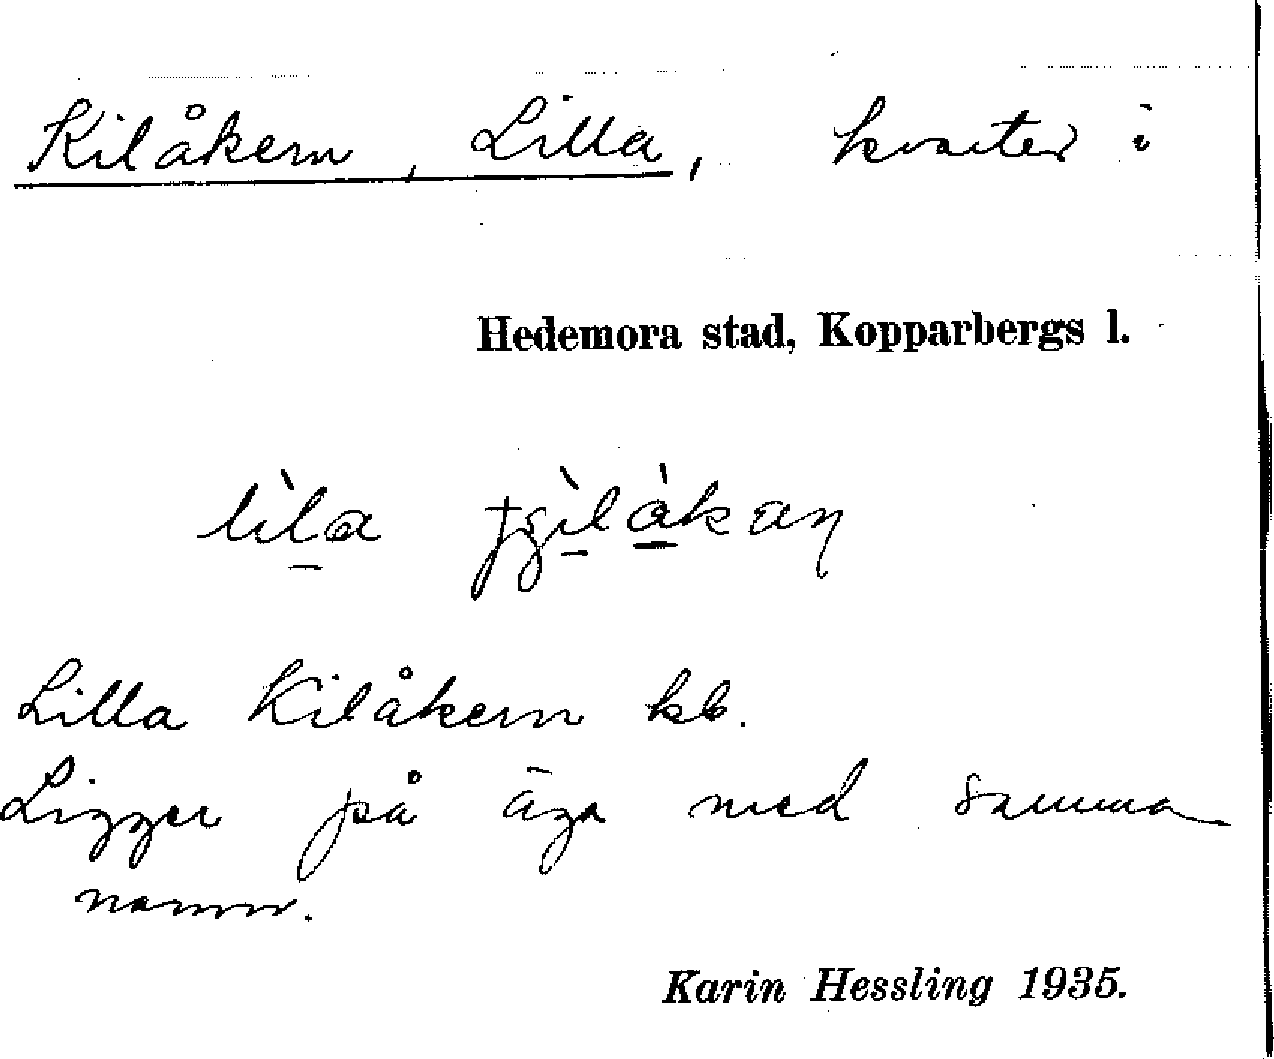 Kilåkern, Lilla, kvarter i
Hedemora stad, Kopparbergs l.
lìla
Lilla Kilåkern kb.
Ligger på äga med samma
namn.
Karin Hessling 1935.